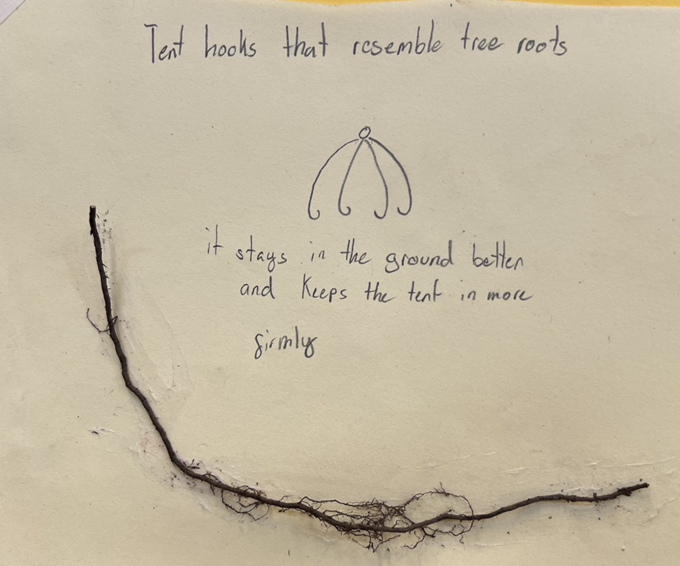 Tent hooks that resemble tree roots
it stays in the ground better
and keeps the tent in more
firmly